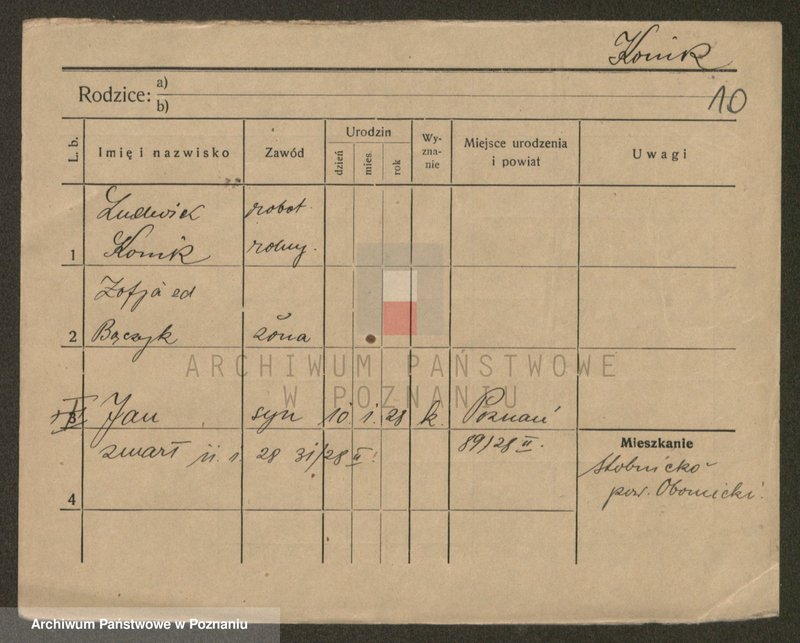 Konik
Rodzice: a)
b)
10
L. b.
Imię i nazwisko
Zawód
Urodzin
dzień
mies.
rok
Wy-
zna-
nie
Miejsce urodzenia
i powiat
Uwagi
Ludwick robot.
1 Konik rolny.
Zofja
2 Bączyk żona
3 Jan syn 10 1. 28 k. Poznań
zmarł 11. 1. 28 31/28 II. 89/28 II.
4
Mieszkanie
pow. Obornicki.
ARCHIWUM PAŃSTWOWE
W POZNANIU
Archiwum Państwowe w Poznaniu